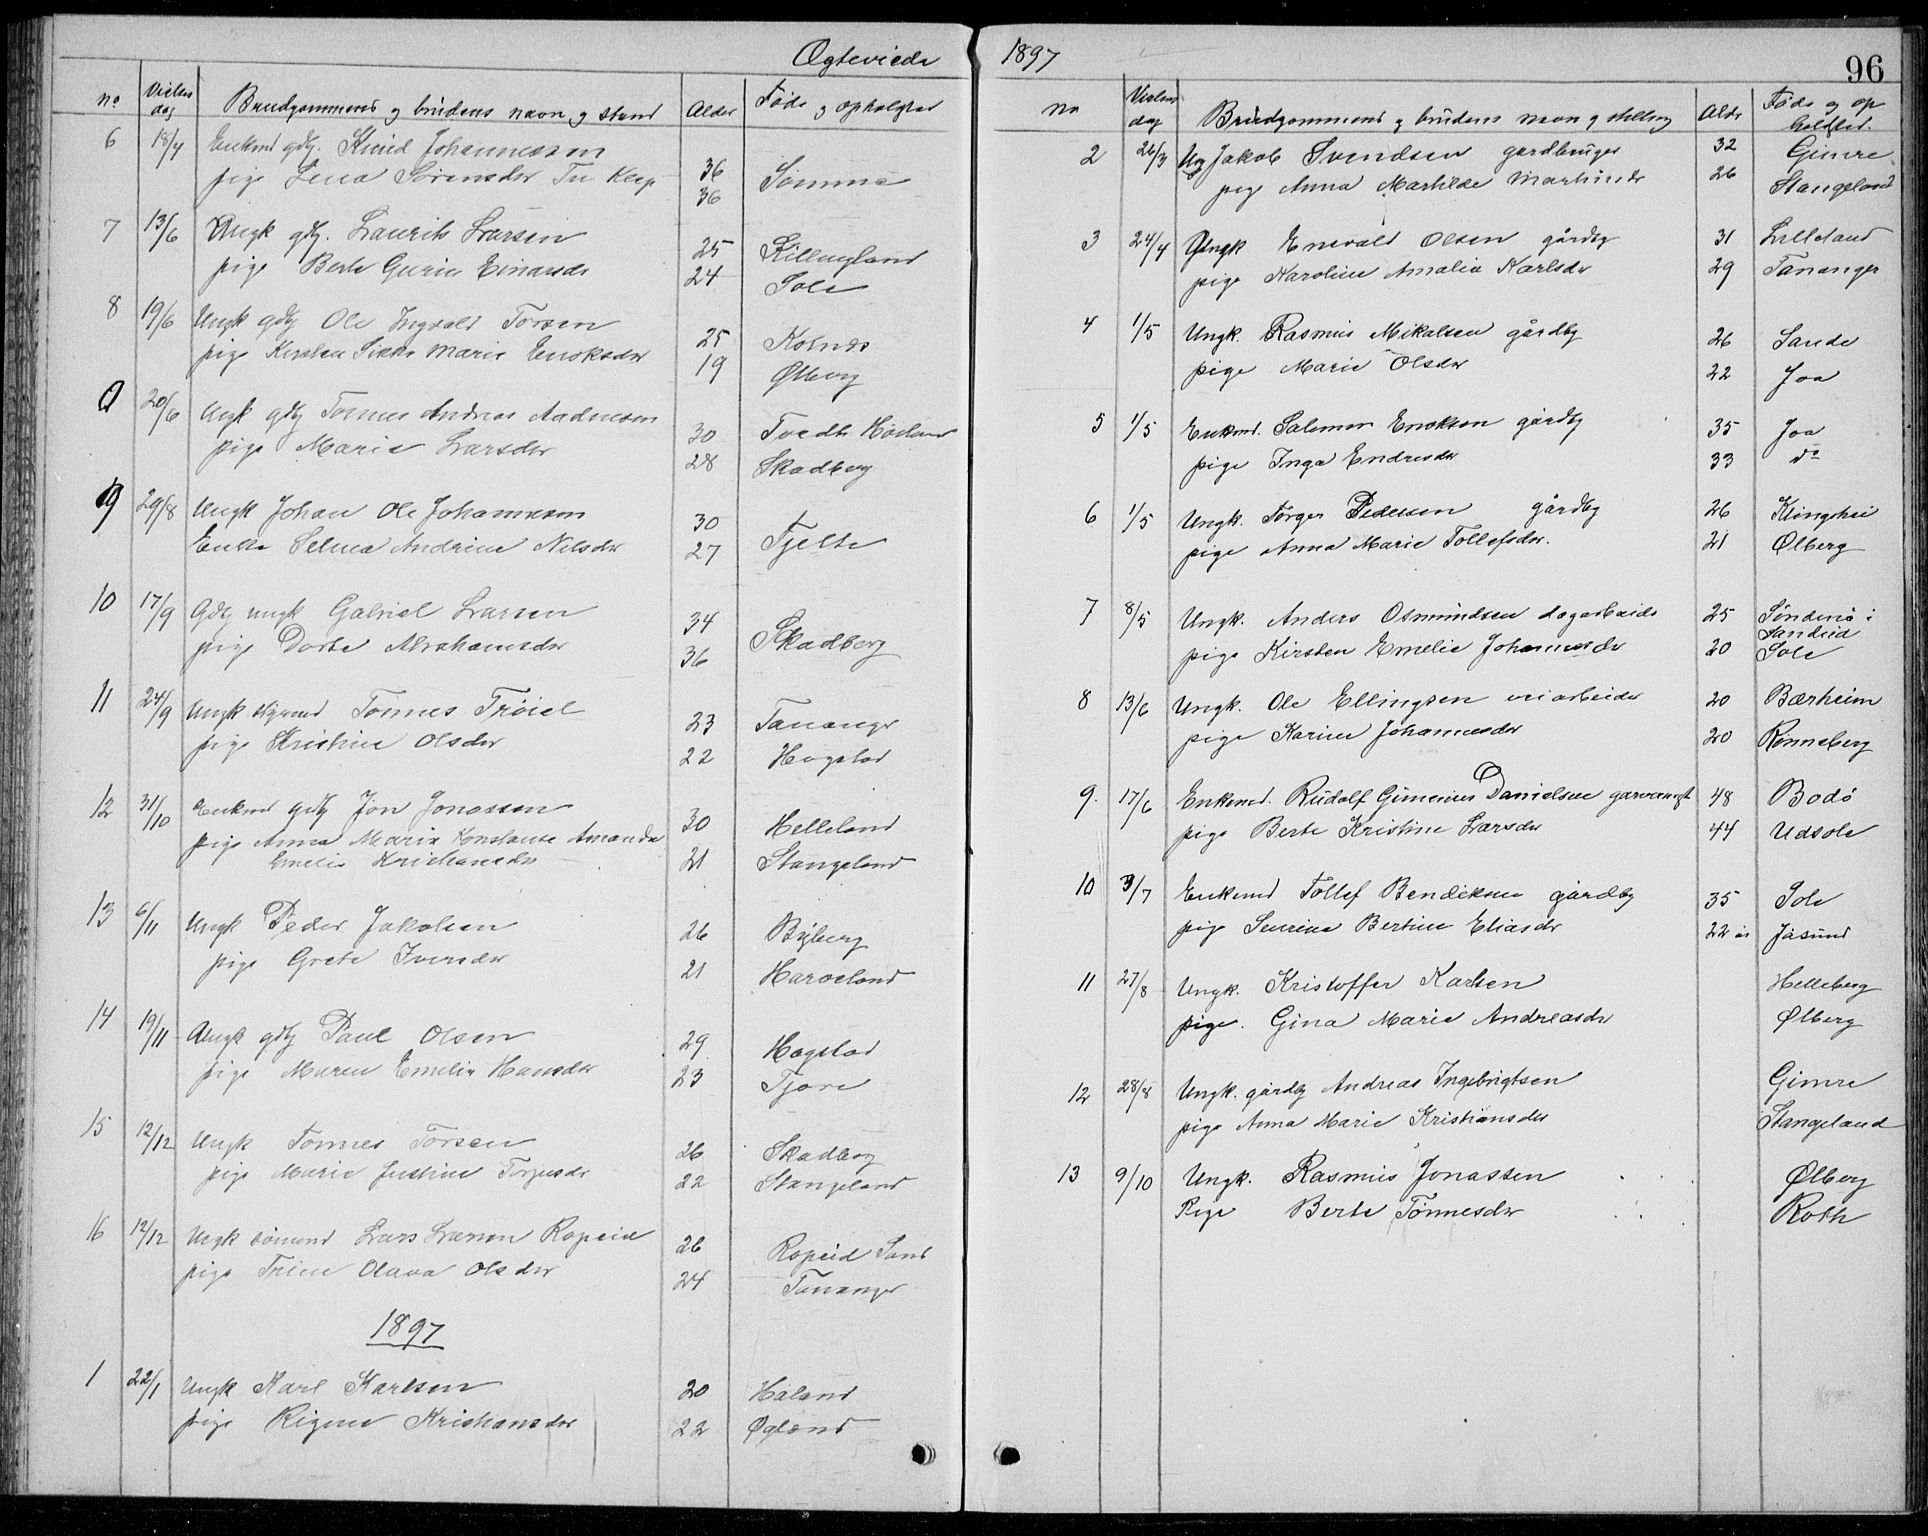 Ægteviede
No Vielses dag Brudgommens og brudens navn og stand Alder Føde og opholdsted
6 18/4 Enkmd gdbg. Knud Johannessen 36 Sømme
pige Lena Sørensdr Tu Klep 36
7 13/6 Ungk gdbg. Laurits Larsen 25
pige Berte Gurine Einarsdr 24 Sole
8 19/6 Ungk gdbg Ole Ingvald Torsen 25 Kolnes
pige Kirsten Sikke Marie Enoksdr 19 Ølberg
9 20/6 Ungk gdbg Tønnes Andreas Aadnesen 30
pige Marie Larsdr 28 Skadberg
9 29/8 Ungk Johan Ole Johannesen 30 Tjelte
Enke Selma Andrine Nilsdr 27
10 17/9 Gdbg ungk Gabriel Larsen 34 Skadberg
pige Dorte Abrahamsdr 36
11 24/9 Ungk styrmd Tønnes Trøiel 23 Tananger
pige Kristine Olsdr 22 Hogstad
12 31/10 Enkmd gdbg Jon Jonassen 30 Helleland
pige Anna Maria Konstanse Amanda
Emelie Kristiansdr 21 Stangeland
13 6/11 Ungk Peder Jakobsen 26 Byberg
pige Grete Iversdr 21 Harveland
14 19/11 Ungk gdbg Paul Olsen 29 Hogstad
pige Maren Emelie Hansdr 23 Tjore
15 12/12 Ungk Tønnes Torsen 26 Skadberg
pige Marie Justine Torjusdr 22 Stangeland
16 12/12 Ungk sømand Lars Larsen Ropeid 26 Ropeid Sand
pige Trine Olava Olsdr 24 Tananger
1897
1 22/1 Ungk Karl Karlsen 20 Håland
pige Regine Kristiansdr 22 Øgland
1897
96
No Vielses dag Brudgommens og brudens navn og stilling Alder Føde og opholdsted.
2 26/3 Ung Jakob Svendsen gardbruger 32 Gimre
pige Anna Marthilde Martinsdr 26 Stangeland
3 24/4 Ungk Enevald Olsen gårdbg 31 Lilleland
pige Karoline Amalia Karlsdr 29 Tananger
4 1/5 Ungk. Rasmus Mikalsen gårdbg 26 Sande
pige Marie Olsdr 22 Joa
5 1/5 Enkmd. Salomon Enoksen gårdbg 35 Joa
pige Inga Endresdr 33 do
6 1/5 Ungk. Torger Pedersen gårdbg 26 Klinghei
pige Anna Marie Tollefsdr. 21 Ølberg
7 8/5 Ungk. Anders Osmundsen dagarbeide 25 Søndenå i Sandeid
pige Kirsten Emelie Johannesdr 20 Sole
8 13/6 Ungk. Ole Ellingsen veiarbeider 20 Bærheim
pige Karine Johannesdr 20 Rønneberg
9. 17/6 Enkemd. Rudolf Gimenius Danielsen 48 Bodø
pige Berte Kristine Larsdr 44 Udsole
10 3/7 Enkemd Tollef Bendiksen gårdbg 35 Sole
pige Severine Bertine Eliasdr 22 år Jåsund
11 27/8 Ungk. Kristoffer Karlsen Helleberg
pige. Gina Marie Andreasdr Ølberg
12 28/8 Ungk. gårdbg Andreas Ingebrigtsen Gimre
pige Anna Marie Kristiansdr Stangeland
13 9/10 Ungk. Rasmus Jonassen Ølberg
Pige Berte Tønnesdr Roth